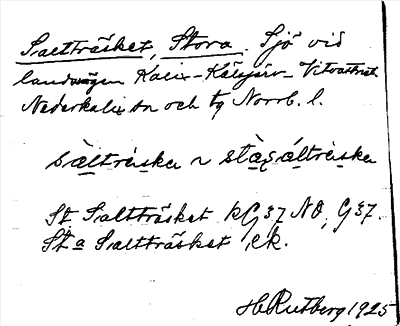 Saltträsket, Stora. Sjö vid
landsvägen Kalix-Kälsjärv-Vitvattnet
Nederkalix sn och tg Norrb. l.
sàltrèskə ~ stɑ̀sáltrèskə
St Saltträsket kG 37 NO, G 37.
St a Saltträsket ek.
H Rutberg 1925